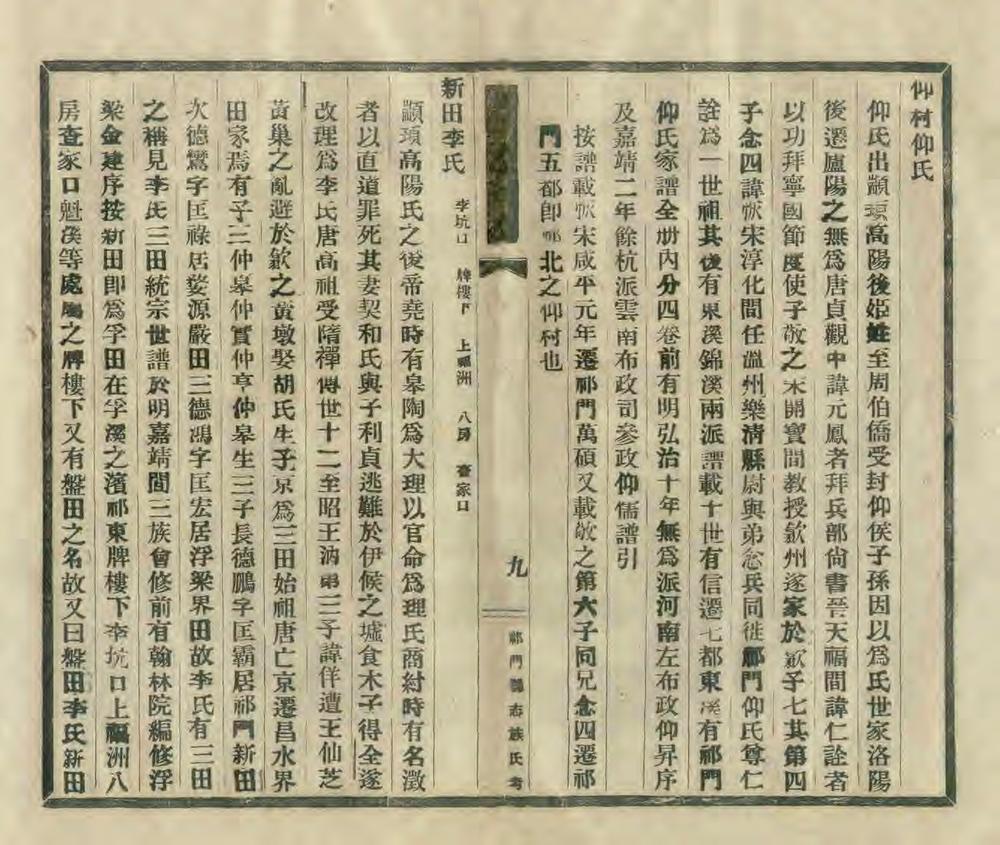 仰村仰氏
仰氏出顓頊高陽後姬姓至周伯僑受封仰侯子孫因以爲氏世家洛陽
後遷廬陽之無爲唐貞觀中諱元鳳者拜兵部尚書晉天福間諱仁詮者
以功拜寧國節度使子敬之宋開寶間教授歙州遂家於歙子七其第四
子念四諱忻宋淳化間任溫州樂清縣尉與弟忩兵同徙祁門仰氏尊仁
詮爲一世祖其後有東溪錦溪兩派譜載十世有信遷七都東溪有祁門
仰氏家譜全册內分四卷前有明弘治十年無爲派河南左布政仰昇序
及嘉靖二年餘杭派雲南布政司參政仰儒譜引
按譜載忻宋咸平元年遷祁門萬碩又載敬之第六子同兄念四遷祁
門五都即祁北之仰村也
九
祁門縣志族氏考
新田李氏 李坑口 牌樓下 上福洲 八房 查家口
顓頊高陽氏之後帝堯時有皋陶爲大理以官命爲理氏商紂時有名徵
者以直道罪死其妻契和氏與子利貞逃難於伊候之墟食木子得全遂
改理爲李氏唐高祖受隋禪傳世十二至昭王汭第三子諱佯遭王仙芝
黃巢之亂避於歙之黃墩娶胡氏生子京爲三田始祖唐亡京遷昌水界
田家焉有子三仲皋仲寘仲亨仲皋生三子長德鵬字匡霸居祁門新田
次德鸞字匡祿居婺源嚴田三德鴻字匡宏居浮梁界田故李氏有三田
之稱見李氏三田統宗世譜於明嘉靖間三族會修前有翰林院編修浮
梁金建序按新田即爲孚田在孚溪之濱祁東牌樓下李坑口上福洲八
房查家口魁溪等處屬之牌樓下又有盤田之名故又曰盤田李氏新田